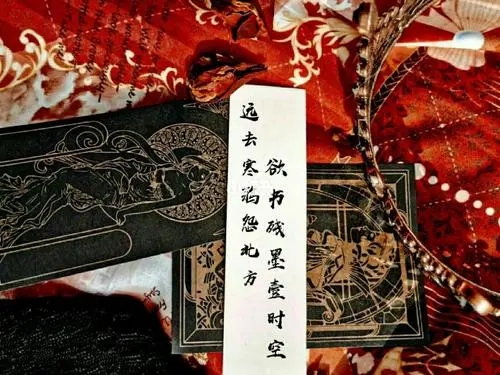 远去寒鸦怨北方
欲书残墨壹时空